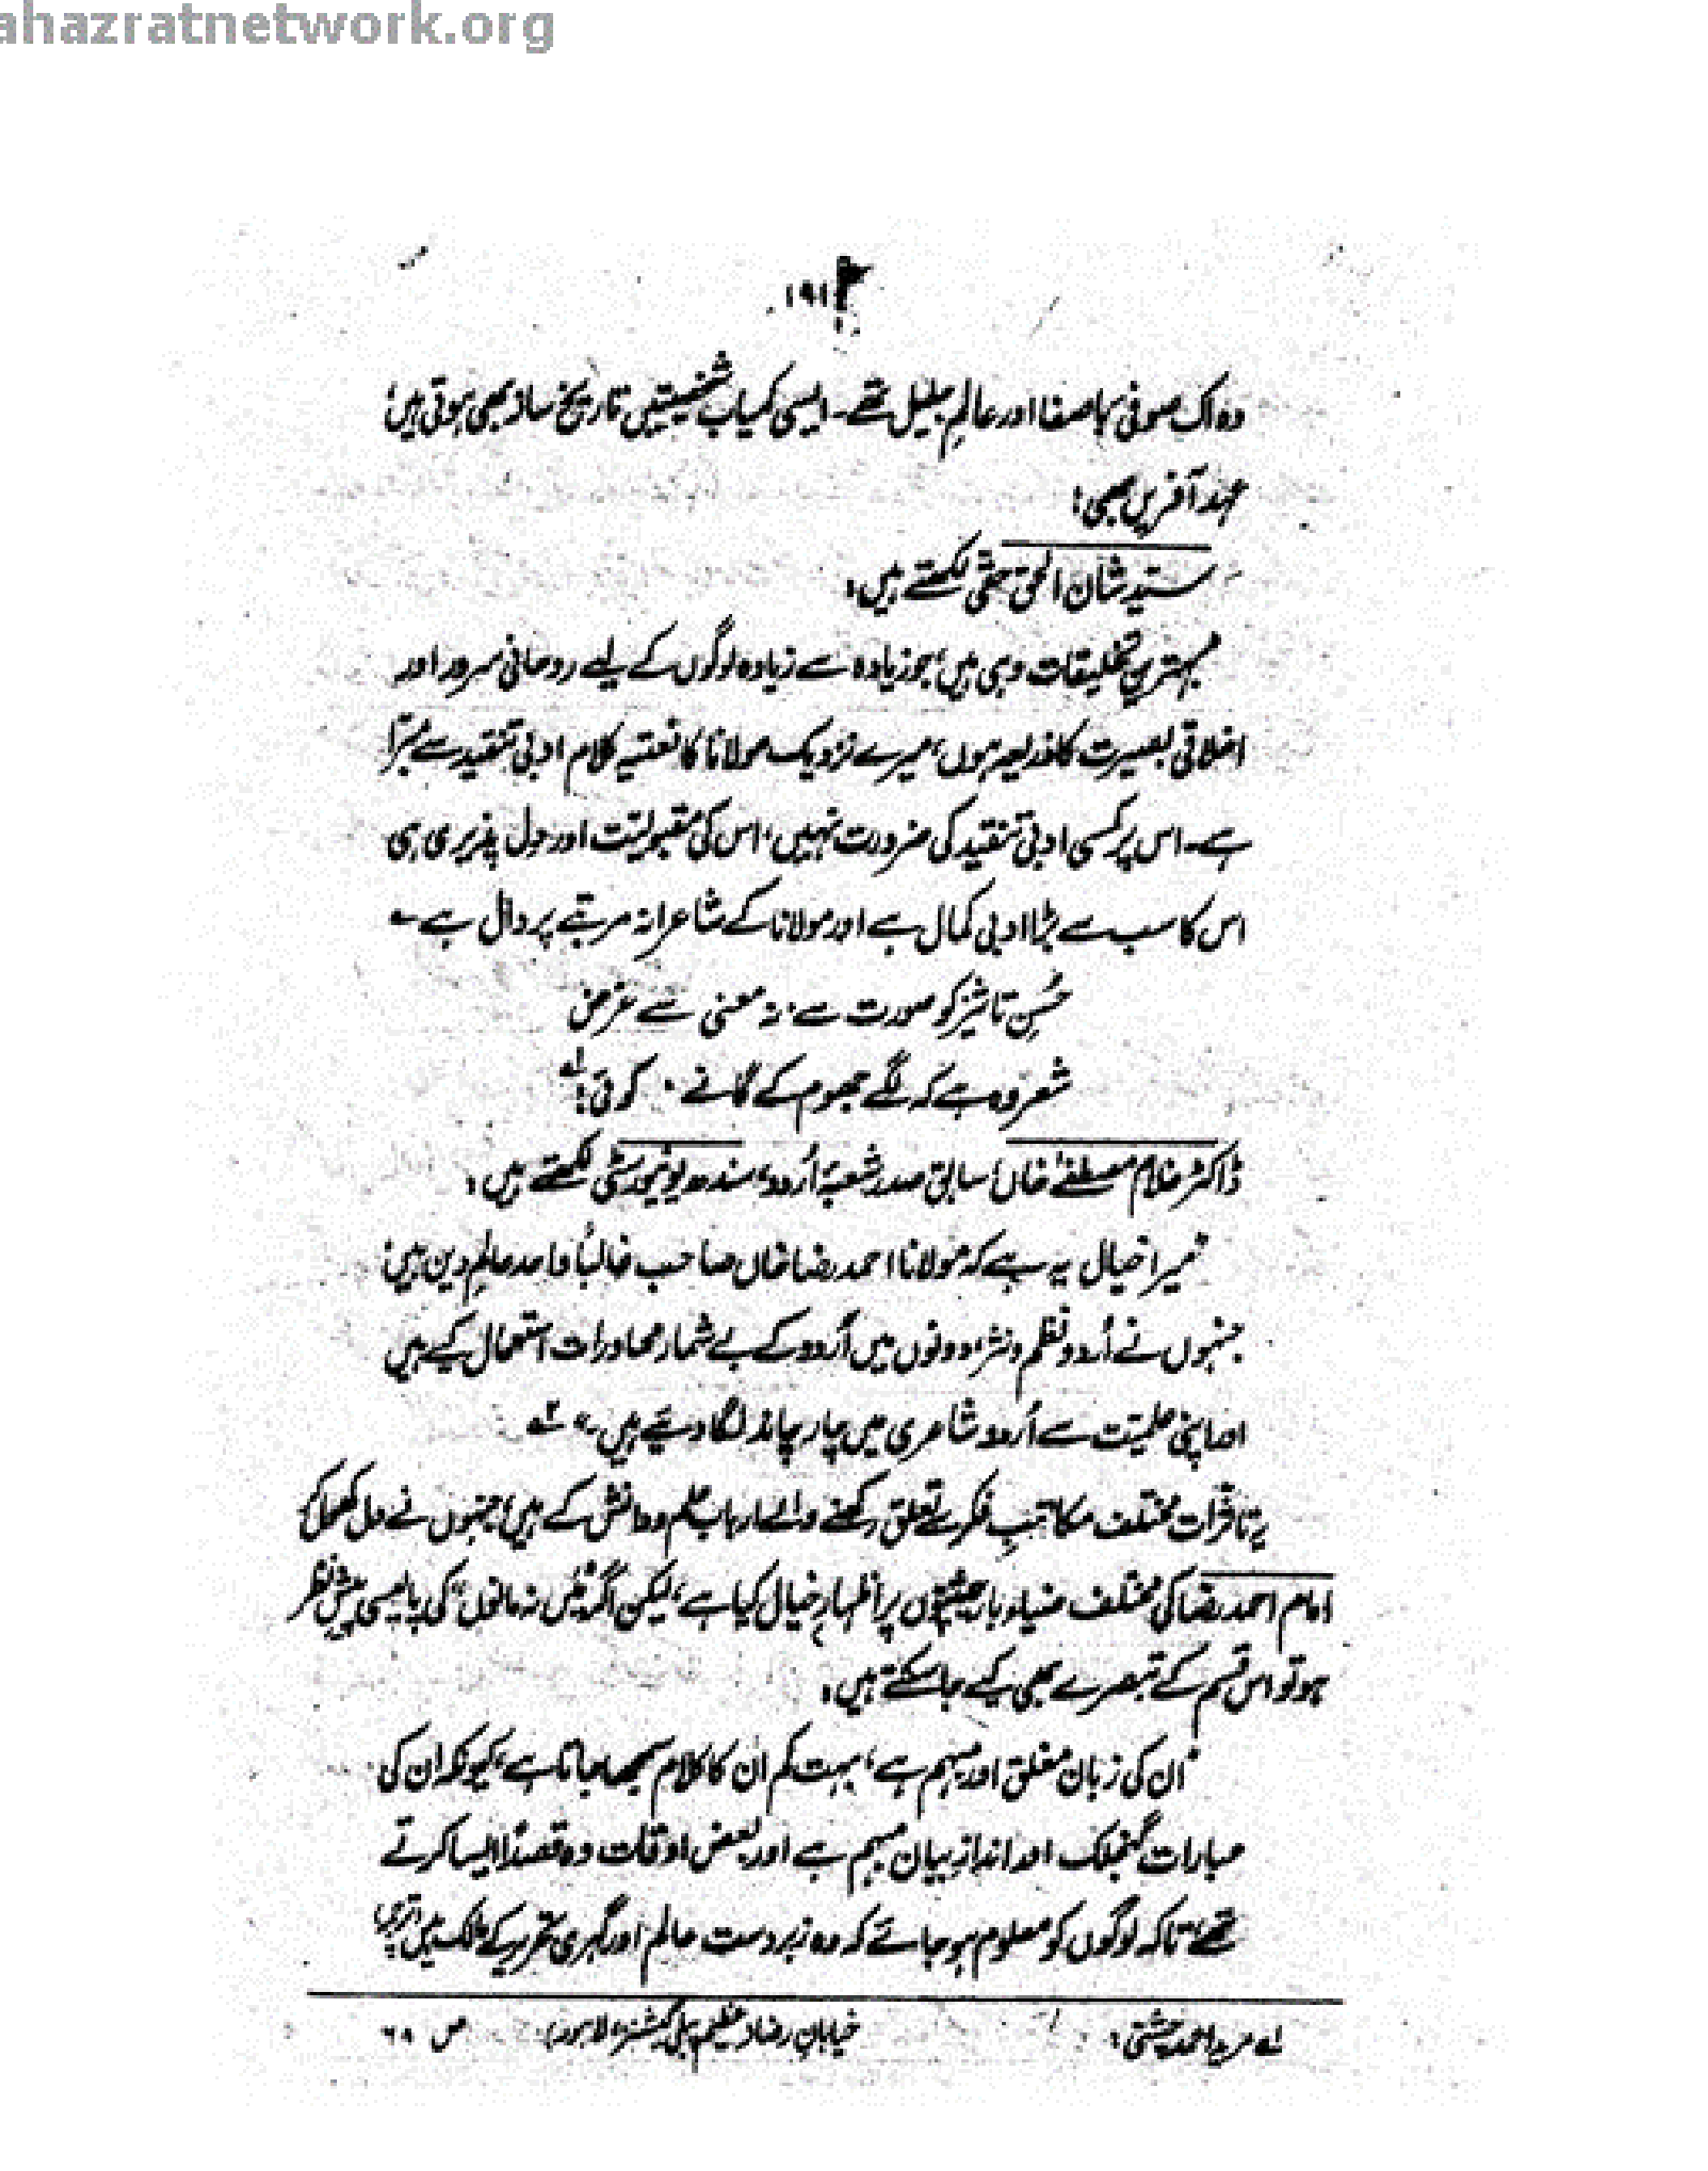 ahazratnetwork.org
۱۹۱
وہ اک صوفی باصفا اور عالمِ جلیل تھے۔ ایسی کمیاب شخصیتیں تاریخ ساز بھی ہوتی ہیں،
عہد آفریں بھی؛
سیّد شان الحق حقّی لکھتے ہیں:
"بہترین تخلیقات وہی ہیں، جو زیادہ سے زیادہ لوگوں کے لیے روحانی سرور اور
اخلاقی بصیرت کا ذریعہ ہوں، میرے نزدیک مولانا کا نعتیہ کلام ادبی تنقید سے مبرّا
ہے۔ اس پر کسی ادبی تنقید کی ضرورت نہیں، اس کی مقبولیّت اور دل پذیری ہی
اس کا سب سے بڑا ادبی کمال ہے اور مولانا کے شاعرانہ مرتبے پر دال ہے ۔
حُسنِ تاثیر کو صورت سے نہ معنی سے غرض
شعر وہ ہے کہ لگے جھوم کے گانے کوئی؛ لے
ڈاکٹر غلام مصطفےٰ خاں، سابق صدر شعبۂ اُردو، سندھ یونیورسٹی لکھتے ہیں:
"میرا خیال یہ ہے کہ مولانا احمد رضا خاں صاحب غالباً واحد عالمِ دین ہیں،
جنہوں نے اُردو نظم و نثر، دونوں میں اُردو کے بے شمار محاورات استعمال کیے ہیں
اور اپنی علمیّت سے اُردو شاعری میں چار چاند لگا دیئے ہیں۔"
یہ تاثرات مختلف مکاتبِ فکر سے تعلق رکھنے والے اربابِ علم و دانش کے ہیں، جنہوں نے دل کھول کر
امام احمد رضا کی مختلف ضیاء بار حیثیتوں پر اظہارِ خیال کیا ہے، لیکن اگر "میں نہ مانوں" کی پالیسی پیشِ نظر
ہو تو اس قسم کے تبصرے بھی کیے جا سکتے ہیں:
"ان کی زبان مغلق اور مبہم ہے، بہت کم ان کا کلام سمجھا جاتا ہے، کیونکہ ان کی
عبارات گنجلک اور اندازِ بیان مبہم ہے اور بعض اوقات وہ قصداً ایسا کرتے
تھے، تاکہ لوگوں کو معلوم ہو جائے کہ وہ زبردست عالم اور گہری تحریر کے مالک ہیں
لے مرید احمد چشتی: خیابانِ رضا (عظیم پبلی کیشنز، لاہور) ص ۶۸